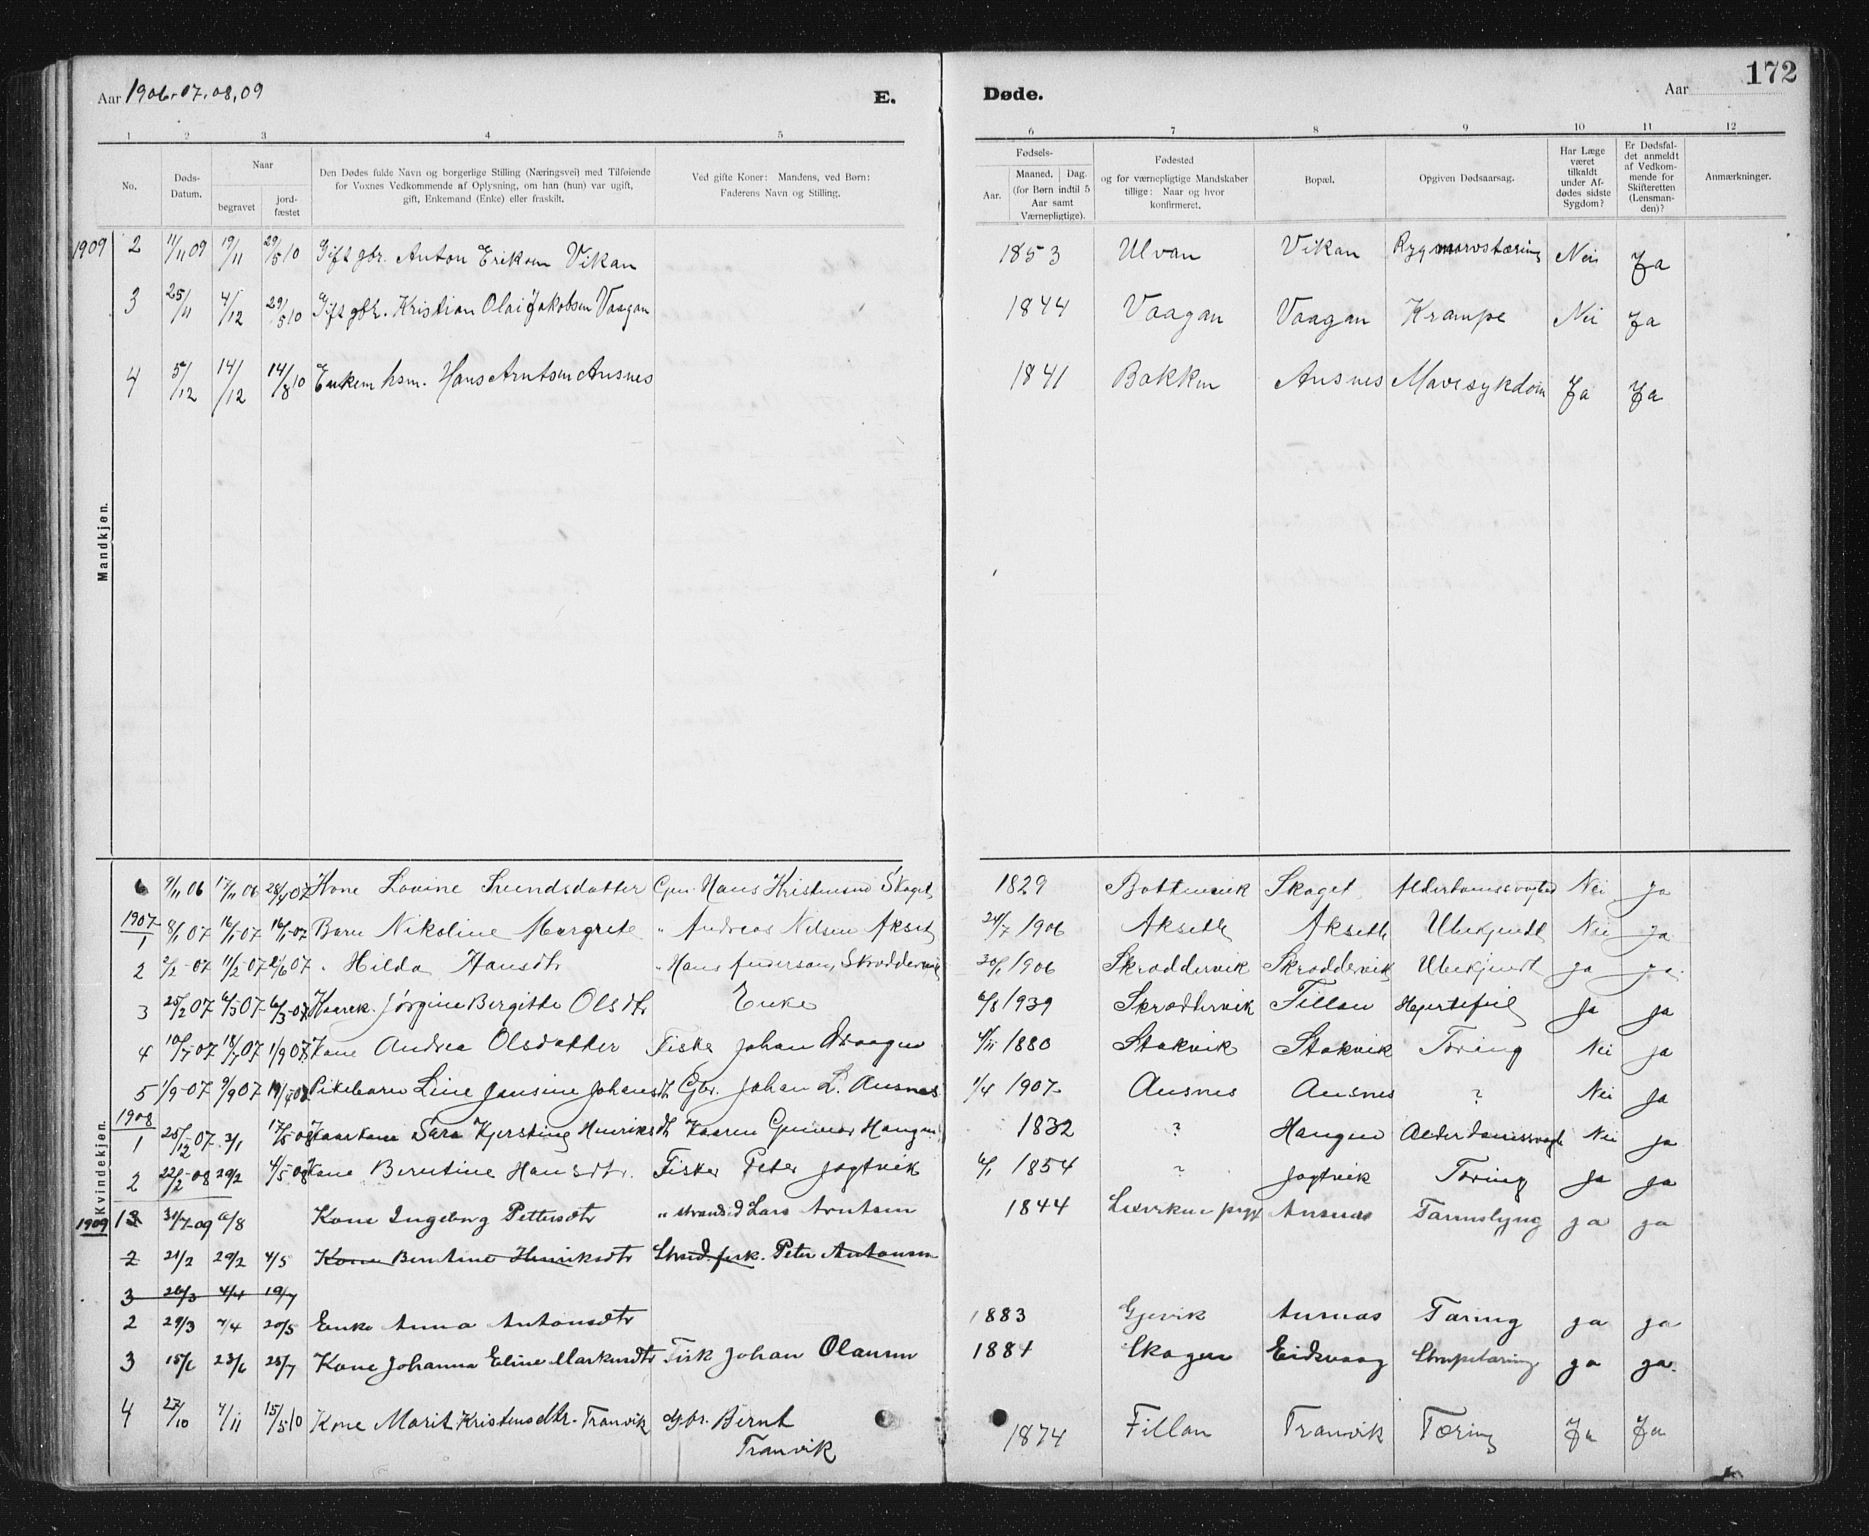 Aar 1906.07.08.09 E. Døde. Aar 172
1 2 3 4 5 6 7 8 9 10 11 12
No. Døds-Datum. Naar begravet jord-fæstet
Den Dødes fulde Navn og borgerlige Stilling (Næringsvei) med Tilføiende for Voxnes Vedkommende af Oplysning, om han (hun) var ugift, gift, Enkemand (Enke) eller fraskilt.
Ved gifte Koner: Mandens, ved Børn: Faderens Navn og Stilling.
Fødsels- Aar. Maaned. Dag. (for Børn indtil 5 Aar samt Værnepligtige).
Fødested og for værnepligtige Mandskaber tillige: Naar og hvor konfirmeret.
Bopæl.
Opgiven Dødsaarsag.
Har Læge været tilkaldt under Afdødes sidste Sygdom?
Er Dødsfaldet anmeldt af Vedkommende for Skifteretten (Lensmanden)?
Anmærkninger.
Mandkjøn.
1909 2 11/11 09 19/11 29/5 10 Gift gbr. Anton Eriksen Vikan 1853 Ulvan Vikan Rygmarvstæring Nei Ja
3 25/11 4/12 29/5 10 Gift gbr. Kristian Olai Jakobsen Vaagan 1844 Vaagan Vaagan Krampe Nei Ja
4 5/12 14/12 14/8 10 Enkem hsm. Hans Arntsen Ansnes 1841 Bakken Ansnes Mavesykdom Ja Ja
Kvindekjøn.
6 9/11 06 17/11 06 28/4 07 Kone Lovine Svendsdatter Gm. Hans Kristensen Skaget 1829 Skaget Nei ja
1907
1 8/1 07 16/1 07 16/1 07 Barn Nikoline Margrete " Andreas Nilsen Akset 24/7 1906 Akseth Akseth Ubekjendt Nei ja
2 2/2-07 11/2-07 2/6 07 " Hilda Hansdtr "Hans Anderson, Skroddervik 20/1 1906 Skroddervik Skroddervik Ubekjendt ja ja
3 25/2 07 6/3 07 6/3-07 Jørgine Bergitte Olsdtr Enke 6/8 1939 Skrodervik Fillan Hjertefeil ja ja
4 10/7-07 18/7 07 1/9 07 Kone Andrea Olsdatter Fisker Johan 4/11 1880 Stokvik Stokvik Tæring Nei ja
5 1/9-07 9/9 07 Pikebarn Line Jansine Johansdt Gbr. Johan L. Ansnes 1/4 1907 Ansnes Ansnes ? Nei ja
1908
1 25/12 07 3/1 17/5 08 Sara Kjerstine Henriksdt Gunnar Haugen 1832 ? Haugen Alderdomssvagh Nei ja
2 22/2-08 29/2 4/5 08 Kone Berntine Hansdtr. Fisker Peter Jøgtvik 6/1 1854 " Jøgtvik Tæring ja ja
1909 1 31/7-09 8/8 Kone Ingeborg Pettersdtr " strandsid Lars Arntsen 1844 Ansnes ja ja
2 21/2 29/2 4/5 Kone Berntine Henriksdtr Peter Antonsen
3 26/3 4/4 19/7
2 29/3 7/4 20/5 Enke Anna Antonsdtr 1883 Gjevik Ansnes Tæring ja ja
3 15/6 23/6 25/7 Kone Johanna Eline Markusdtr Fisk Johan Olausen 1884 Skagen Eidsvaag Strupetæring ja ja.
4 27/10 7/11 15/5 10 Kone Marit Kristensdtr. Tranvik gbr. Bernt Tranvik 1874 Fillan Tranvik Tæring Ja Ja